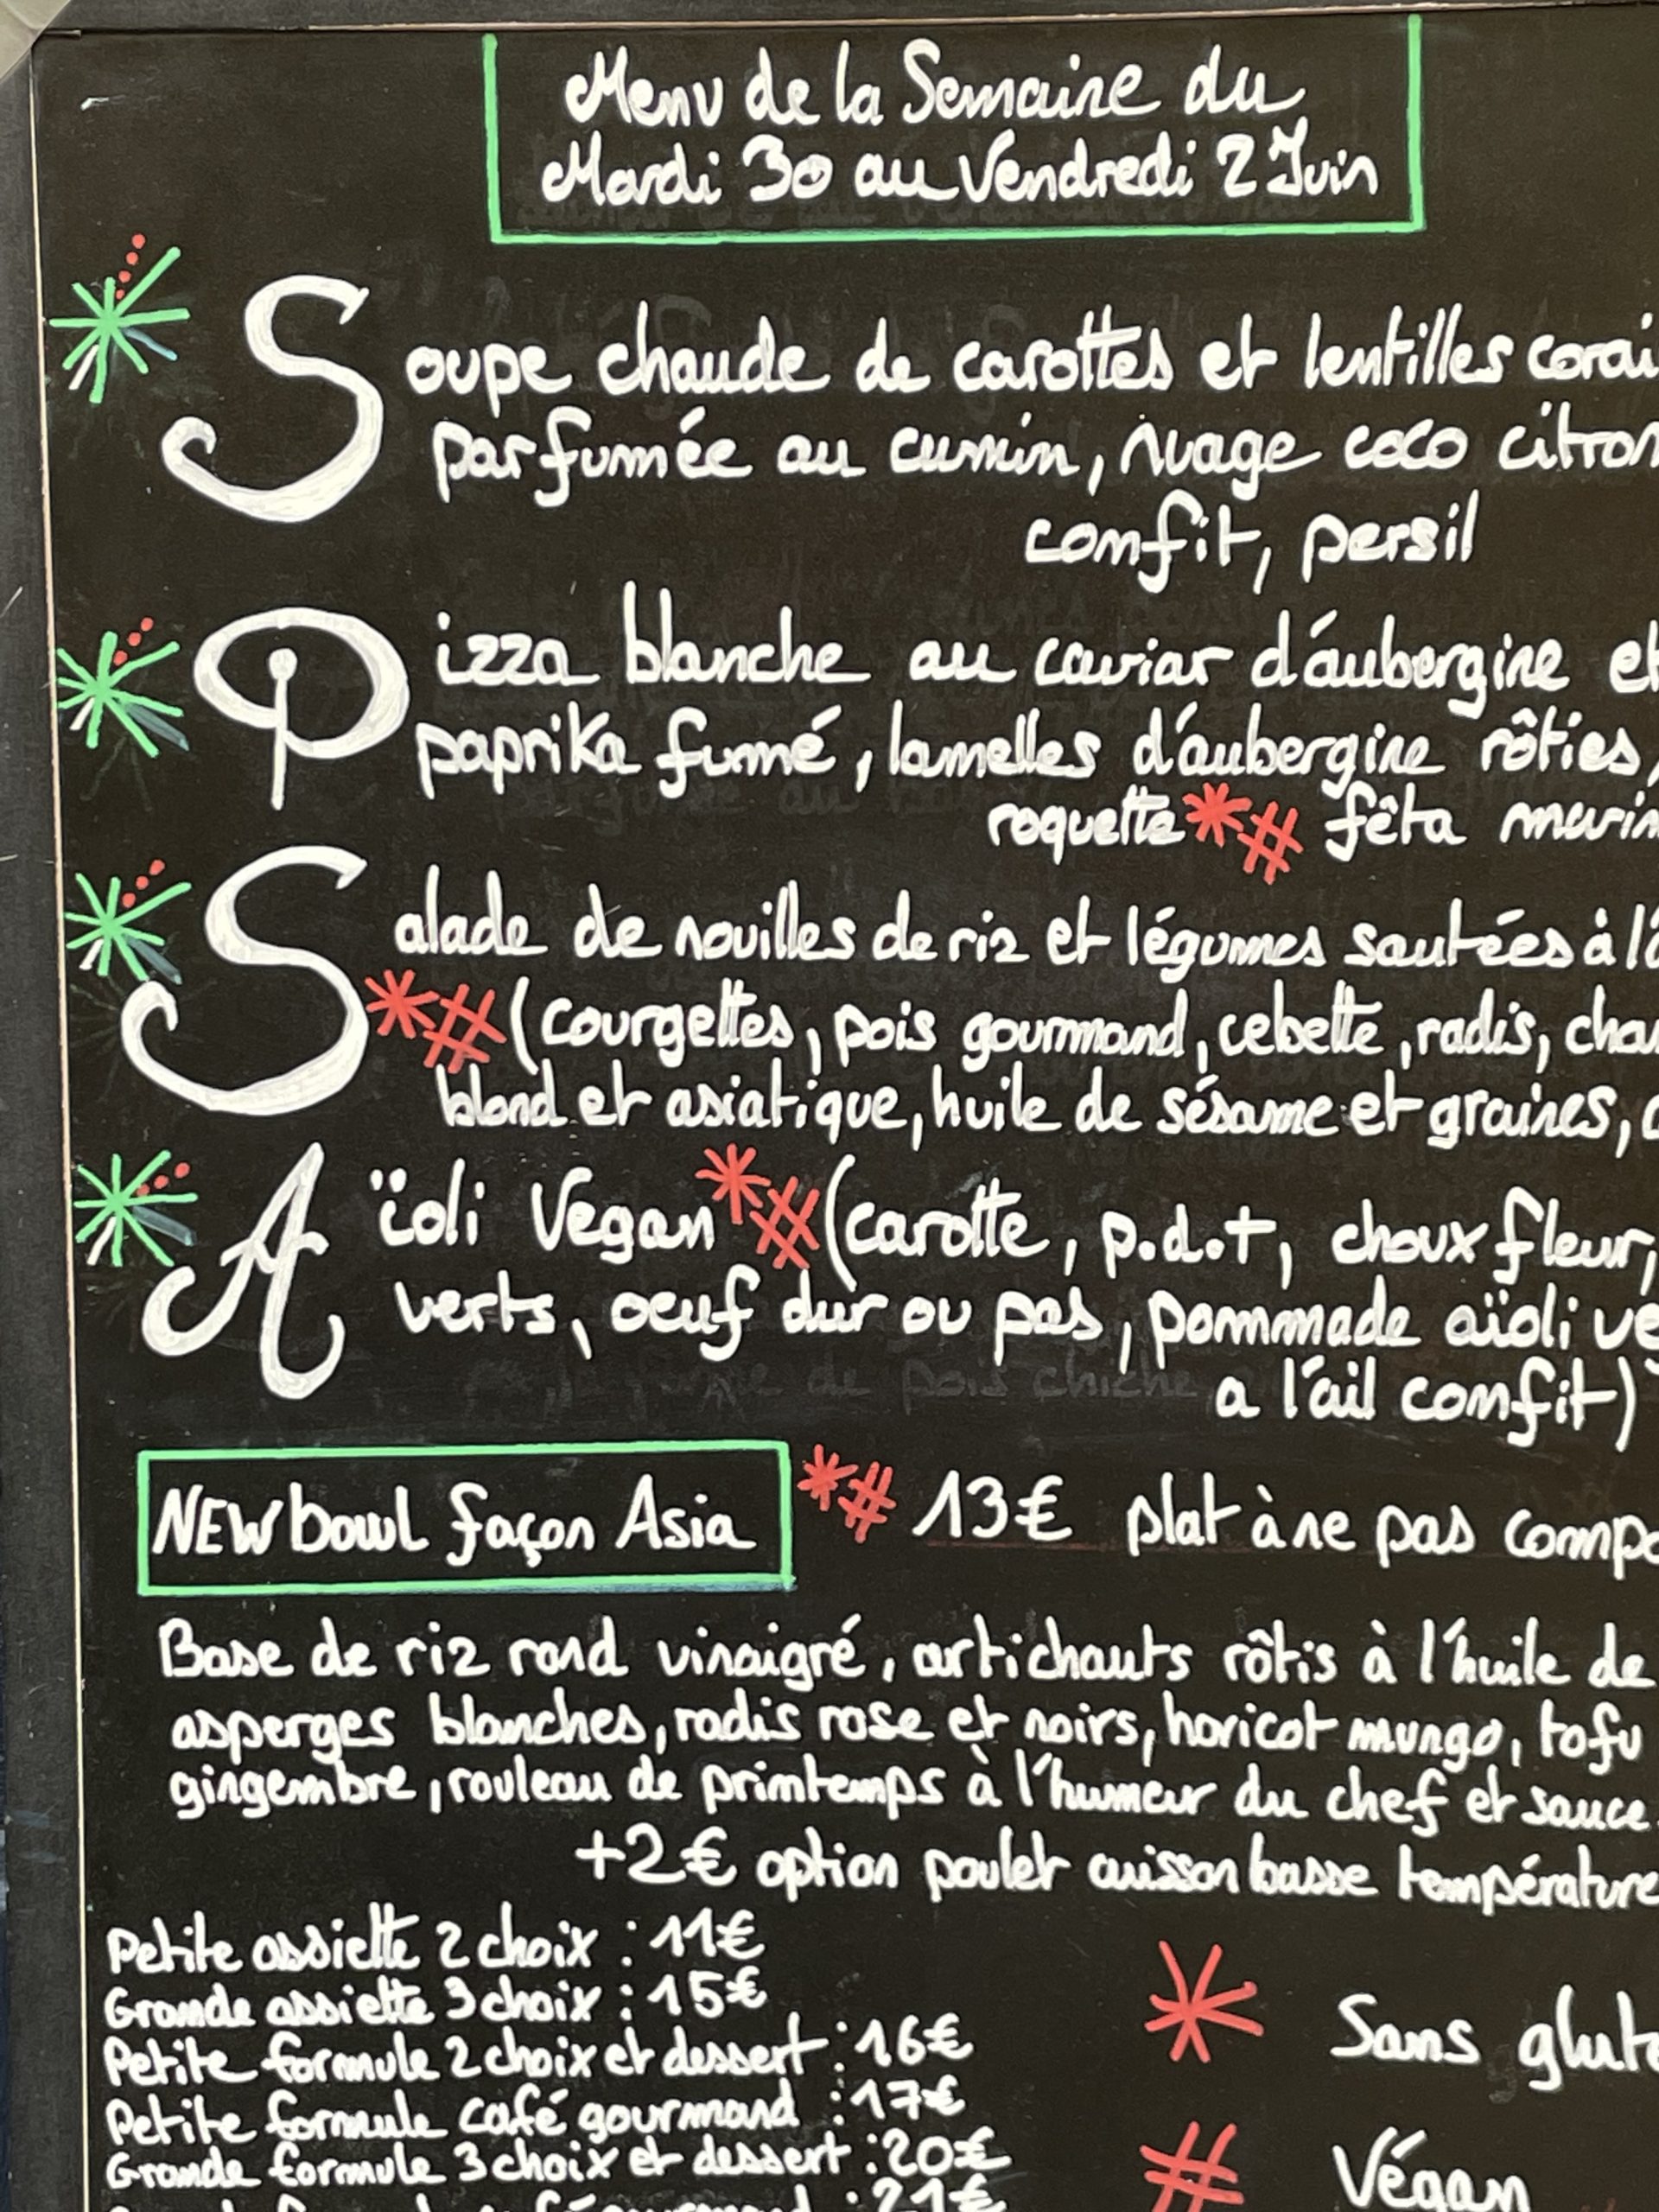 Menu de la Semaine du
Mardi 30 au Vendredi 2 Juin
Soupe chaude de carottes et lentilles corai
parfumée au cumin, nuage coco citron
confit, persil
Pizza blanche au caviar d'aubergine et
paprika fumé, lamelles d'aubergine rôties,
roquette *# fêta marin
Salade de nouilles de riz et légumes sautées à l'
*# (courgettes, pois gourmand, cebette, radis, cha
blond et asiatique, huile de sésame et graines,
Aïoli Vegan *# (carotte, p.d.t, choux fleur,
verts, oeuf dur ou pas, pommade aïoli vé
a l'ail confit)
NEW bowl façon Asia *# 13€ plat à ne pas compo
Base de riz rond vinaigré, artichauts rôtis à l'huile de
asperges blanches, radis rose et noirs, haricot mungo, tofu
gingembre, rouleau de printemps à l'humeur du chef et sauce
+2€ option poulet cuisson basse température
Petite assiette 2 choix : 11€
Grande assiette 3 choix : 15€
Petite formule 2 choix et dessert : 16€
Petite formule café gourmand : 17€
Grande formule 3 choix et dessert : 20€
gourmand : 21€
* Sans glute
# Végan